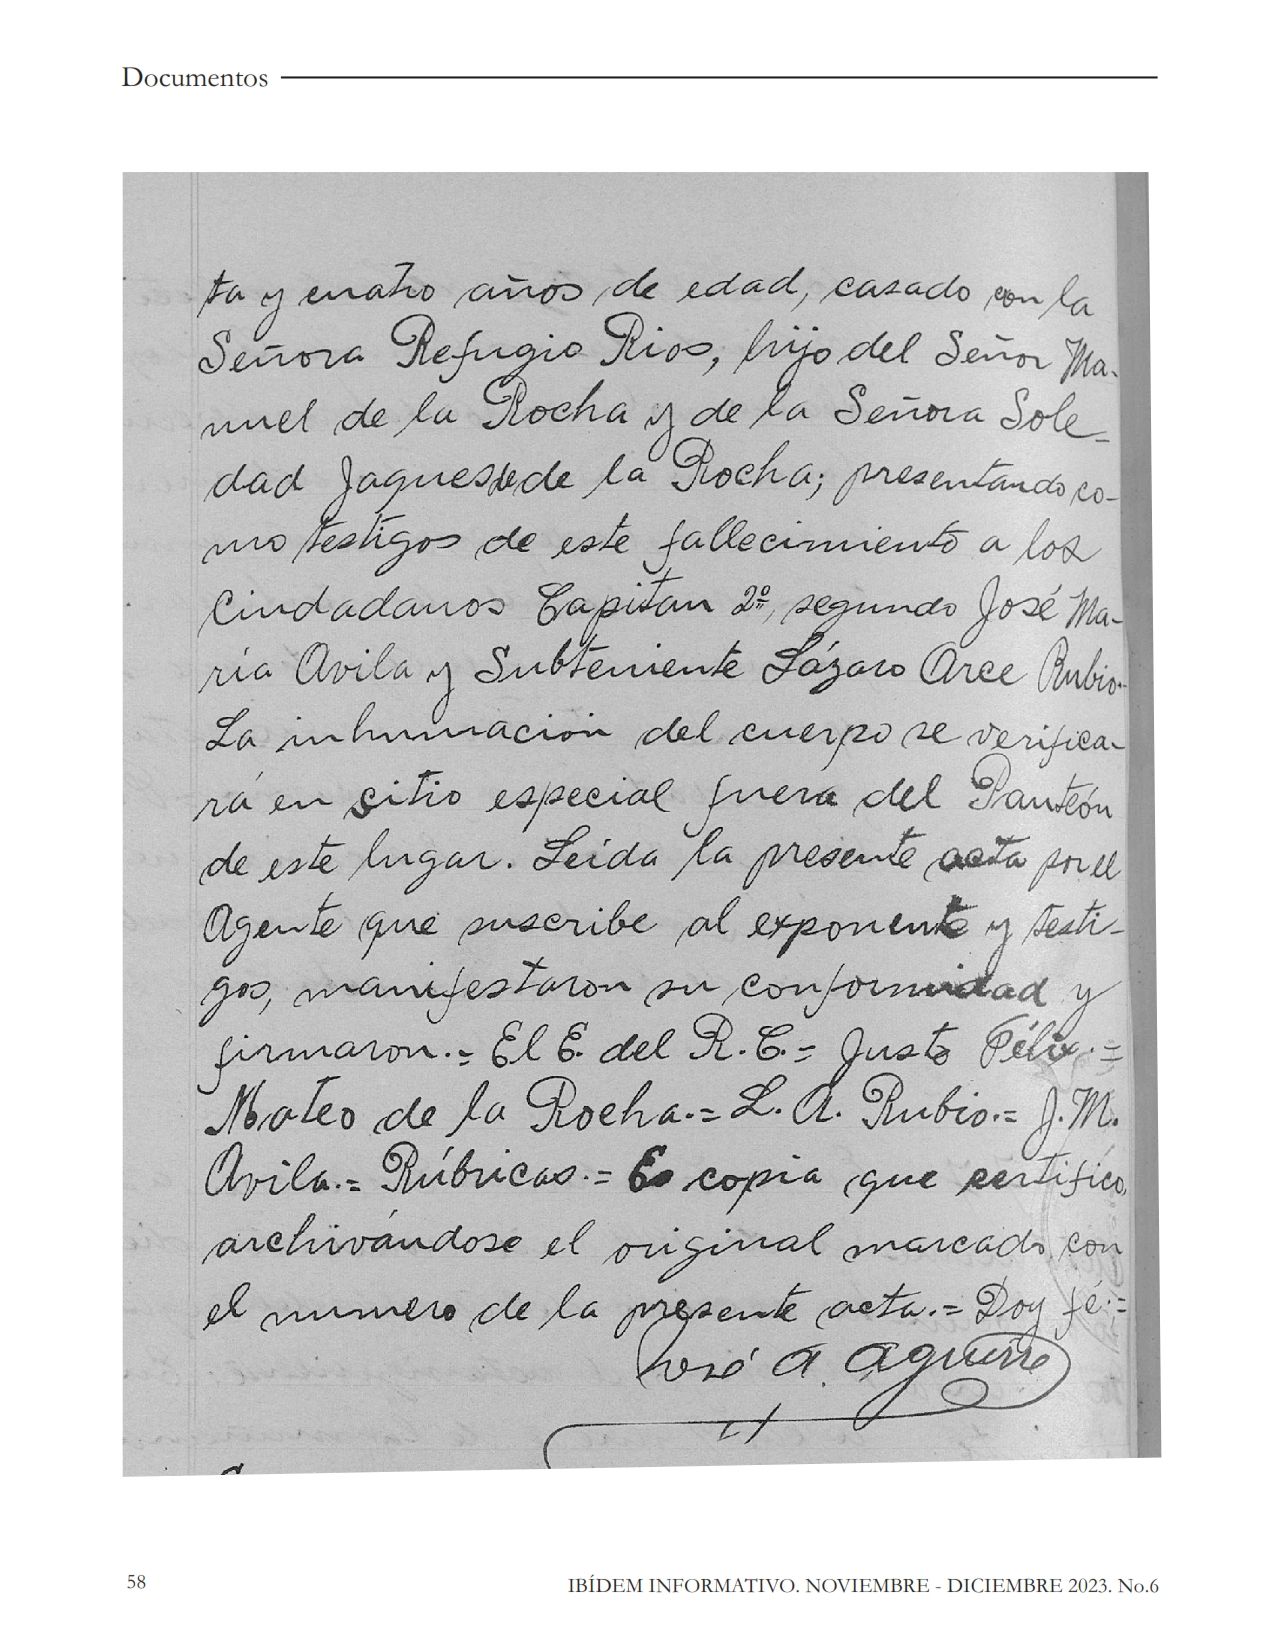 Documentos
ta y cuatro años de edad, casado con la
Señora Refugio Rios, hijo del Señor Ma-
nuel de la Rocha y de la Señora Sole-
dad Jaques de de la Rocha; presentando co-
mo testigos de este fallecimiento a los
Ciudadanos Capitan 2º, segundo José Ma-
ría Avila y Subteniente Lázaro Arce Rubio.
La inhumación del cuerpo se verifica-
rá en sitio especial fuera del Panteón
de este lugar. Leida la presente acta por el
Agente que suscribe al exponente y testi-
gos, manifestaron su conformidad y
firmaron.= El E. del R. C.= Justo Félix.=
Mateo de la Rocha.= L. A. Rubio.= J. M.
Avila.= Rúbricas.= Es copia que certifico,
archivándose el original marcado con
el numero de la presente acta.= Doy fé.=
José A. Aguirre
58
IBÍDEM INFORMATIVO. NOVIEMBRE - DICIEMBRE 2023. No.6